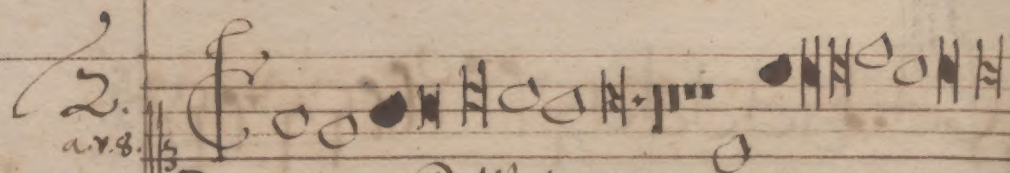 2.
a.v.8.